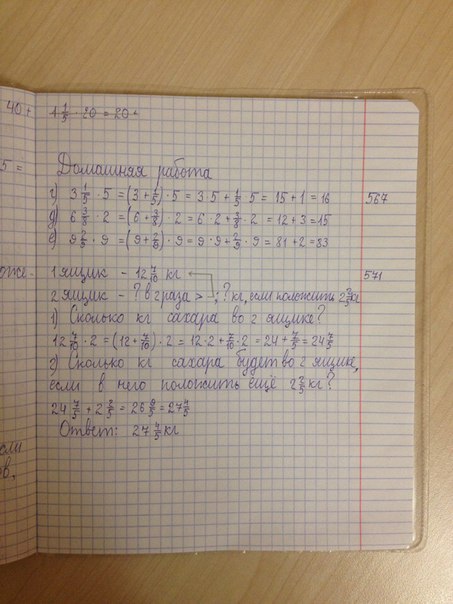 40 + 1 1/5 · 20 = 20 +
5 = Домашняя работа
г) 3 1/5 · 5 = (3 + 1/5) · 5 = 3 · 5 + 1/5 · 5 = 15 + 1 = 16 567
д) 6 3/8 · 2 = (6 + 3/8) · 2 = 6 · 2 + 3/8 · 2 = 12 + 3 = 15
е) 9 2/9 · 9 = (9 + 2/9) · 9 = 9 · 9 + 2/9 · 9 = 81 + 2 = 83
оже- 1 ящик - 12 7/10 кг 571
2 ящик - ? в 2 раза > ; ? кг, если положить 2 2/5 кг
1) Сколько кг сахара во 2 ящике?
12 7/10 · 2 = (12 + 7/10) · 2 = 12 · 2 + 7/10 · 2 = 24 + 7/5 = 24 7/5
2) Сколько кг сахара будет во 2 ящике,
если в него положить ещё 2 2/5 кг?
24 7/5 + 2 2/5 = 26 9/5 = 27 4/5
Ответ: 27 4/5 кг